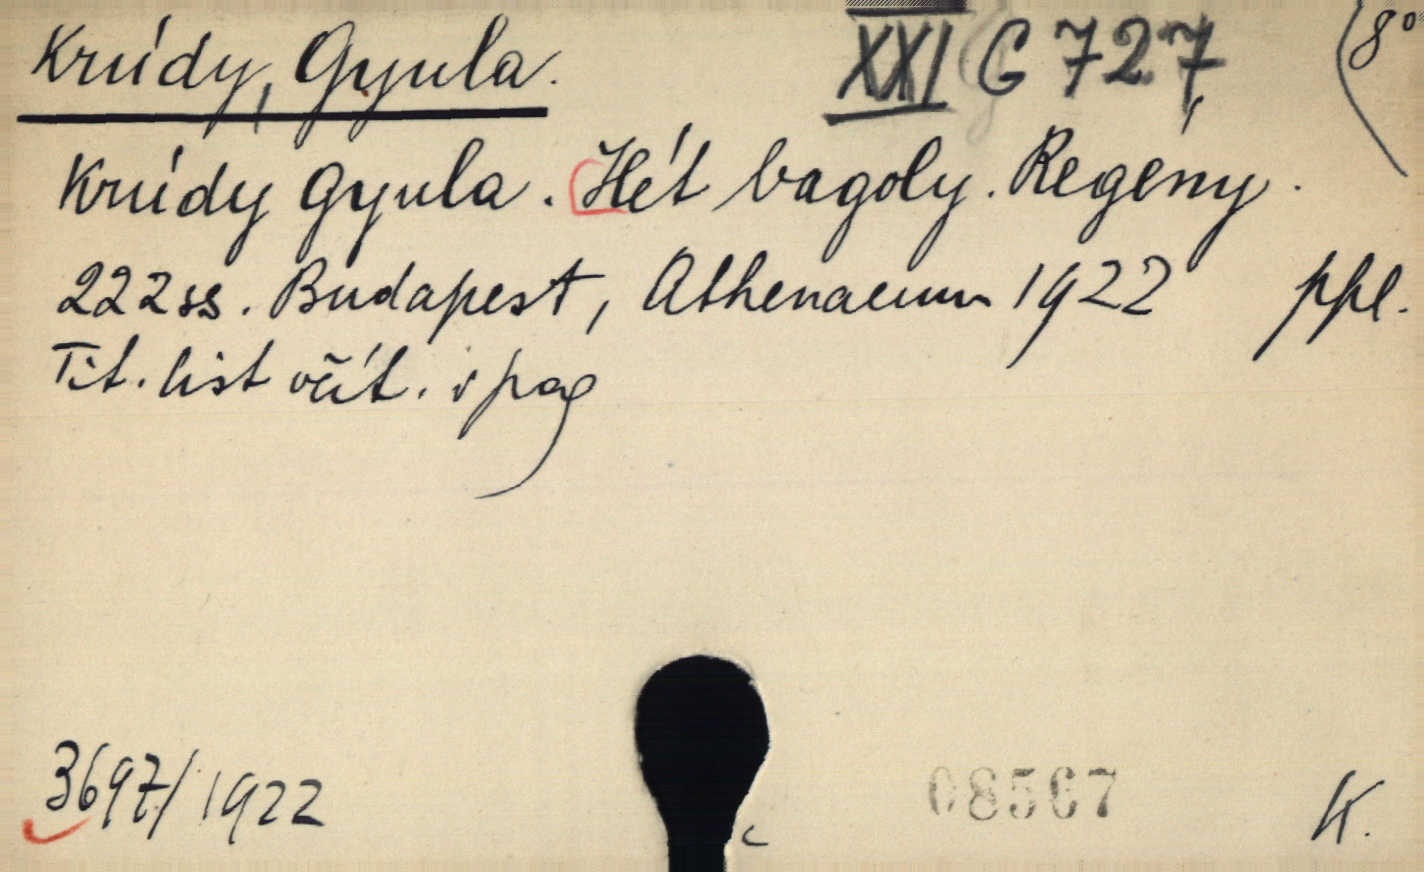 Krúdy, Gyula. XXI G 727, (8°
Krúdy Gyula. Hét bagoly. Regény.
222 ss. Budapest, Athenaeum 1922 ppl.
Tit. list včít. v pag
3697/1922 08567 K.